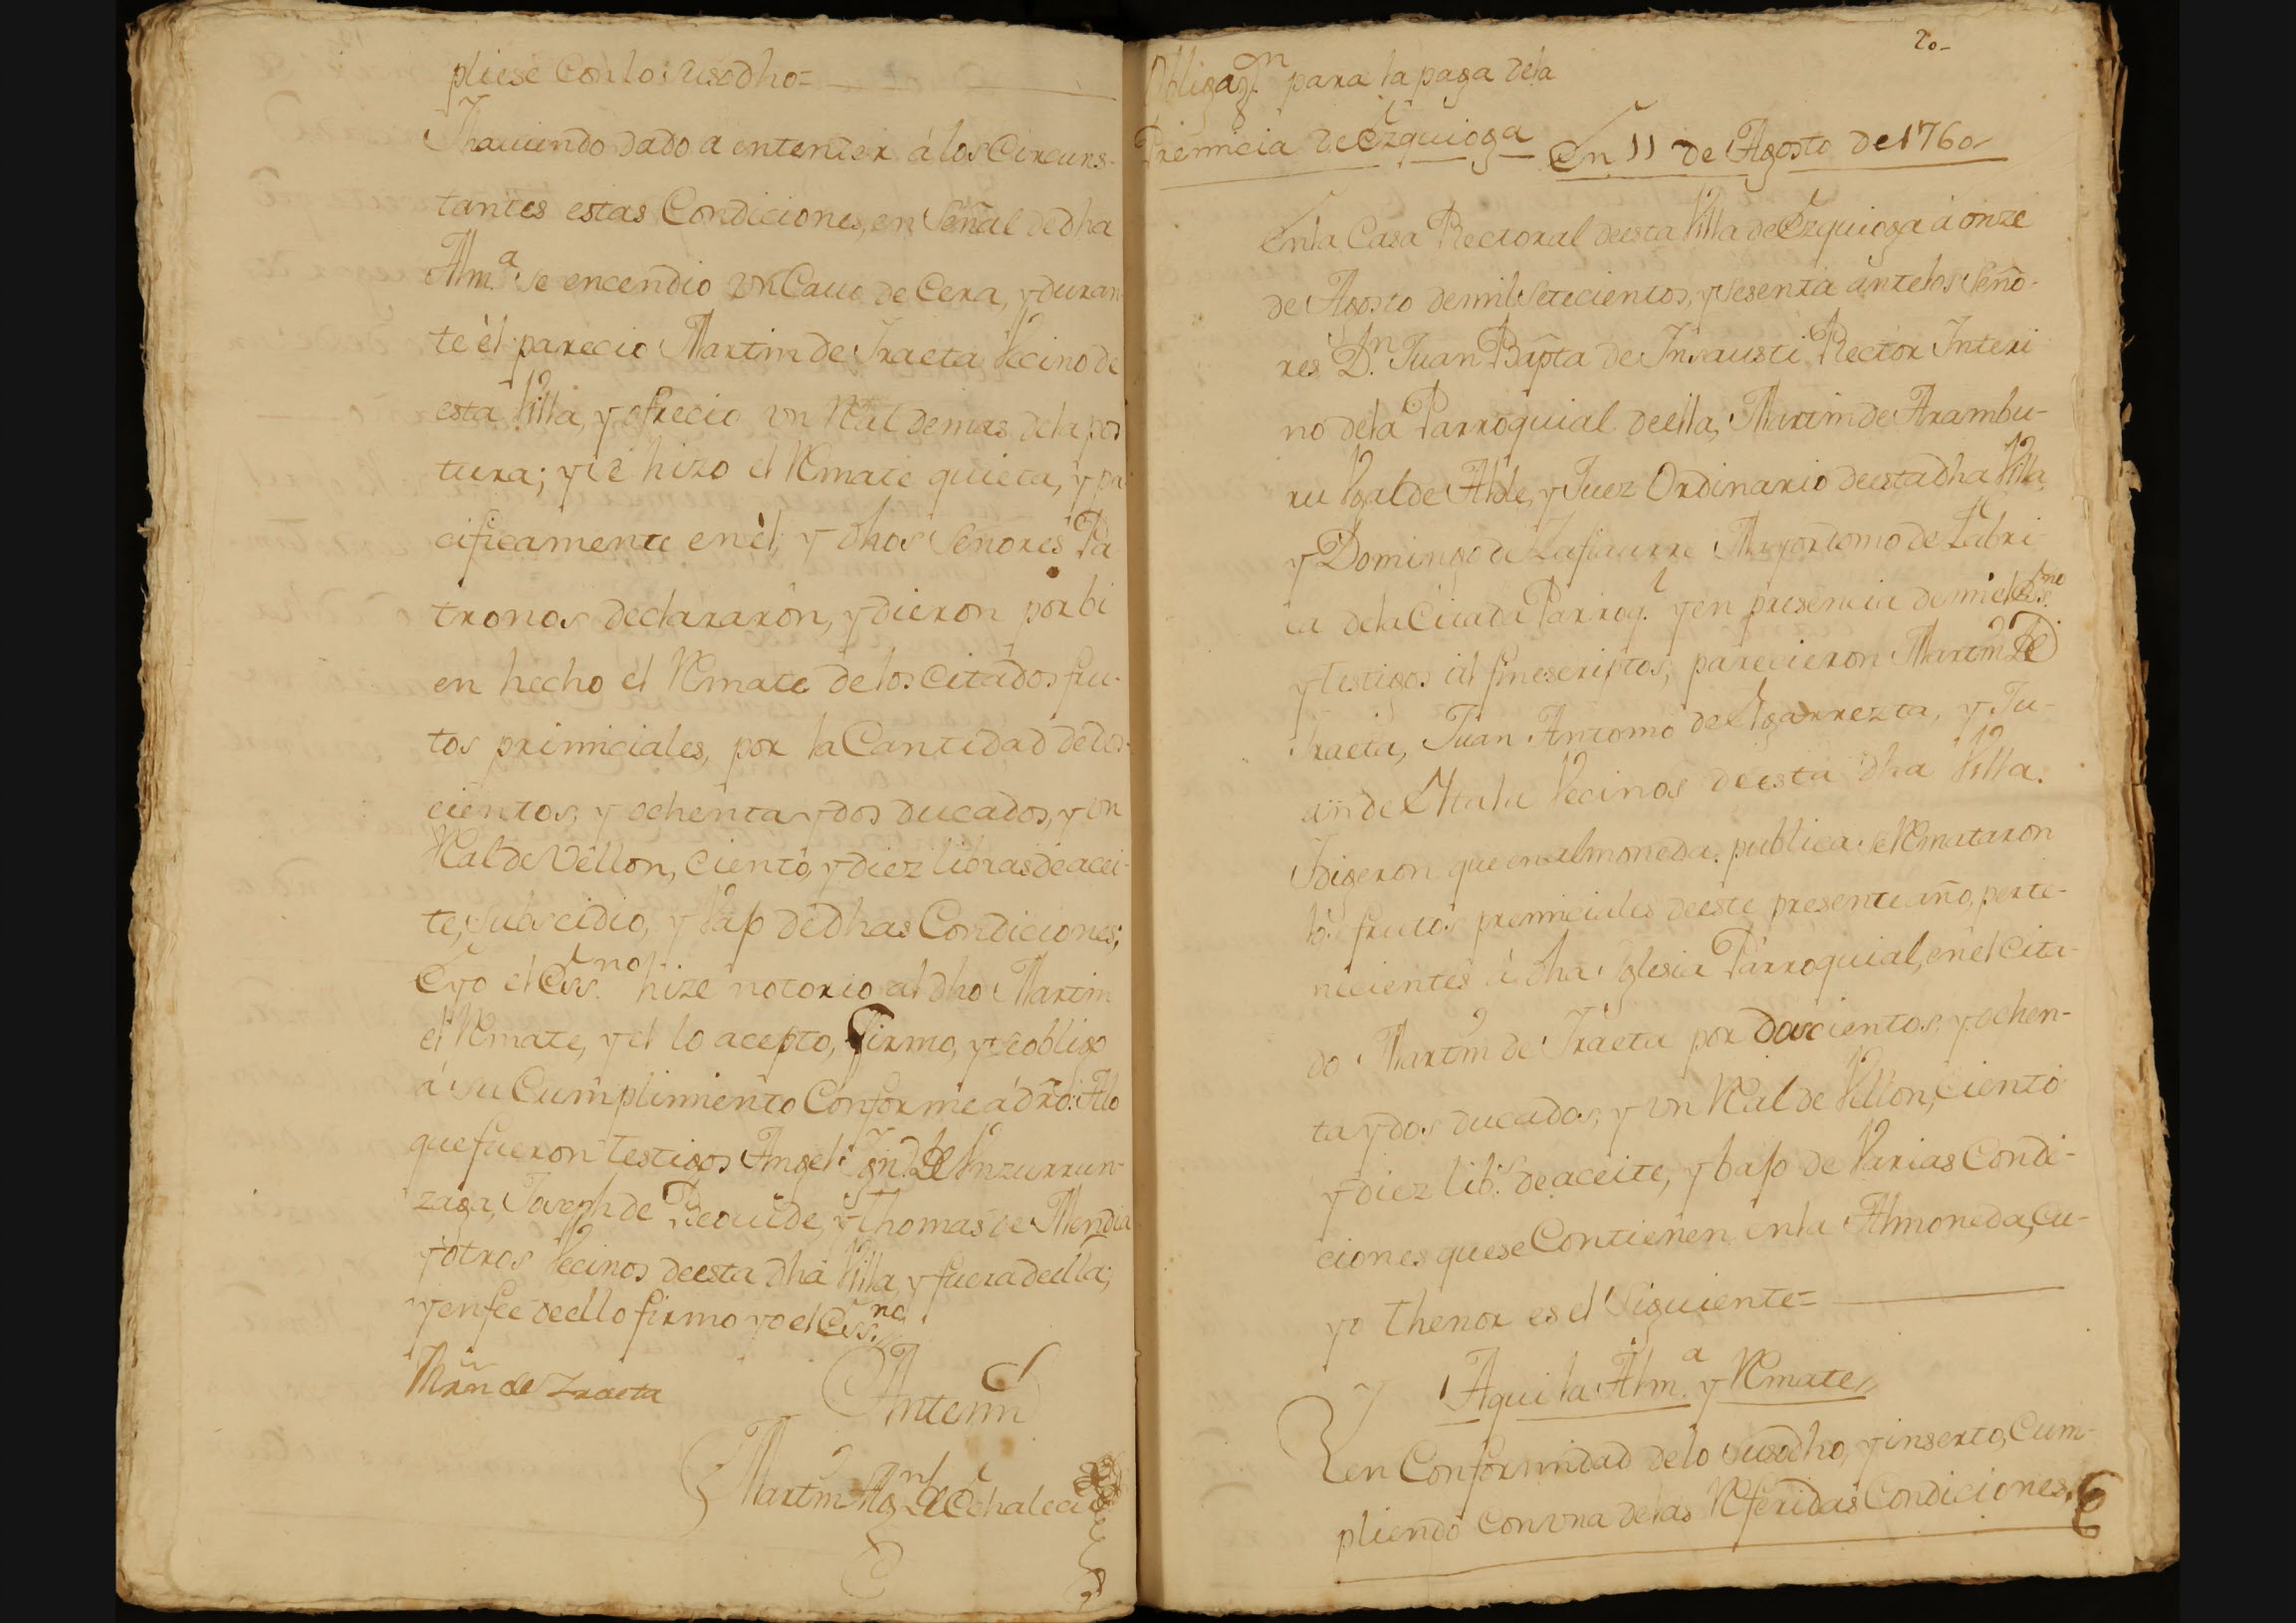 pliese con lo susodho=
Y haviendo dado a entender á los Circuns-
tantes estas Condiciones, en Señal de dha
Alm.a se encendio vn Cavo de Cera, y duran-
te èl parecio Martin de Yraeta Vecino de
esta Villa, y ofrecio vn Real demas de la pos
tura; y se hizo el Remate quieta, y pa
cificamente en èl; y dhos Señores Pa
tronos declararon, y dieron por bi
en hecho el Remate de los Citados fru-
tos primiciales, por la Cantidad de dos-
cientos, y ochenta y dos ducados, y vn
Real de Vellon, Ciento, y diez libras de acei-
te, subscidio, y vajo de dhas Condiciones;
E yo el Ess.no hize notorio al dho Martin
el Remate, y el lo acepto, firmo, y se obligo
á su Cumplimiento Conforme á dro: A lo
que fueron testigos Angel Ign.o de Vnzurrun-
zaga, Joseph de Beouide, y Thomas de Mendia
y otros Vecinos de esta dha Villa, y fuera de ella;
y en fee de ello firmo yo el Ess.no
Mrñ de Yraeta
Ante mi
Martin Ag.n de Echalecu
20-
Obligaz.n para la paga de la
Primicia de Ezquioga En 11 de Agosto de 1760
En la Casa Rectoral de esta Villa de Ezquioga á onze
de Agosto de mil Setecientos, y Sesenta ante los Seño-
res D.n Juan Bapta de Insausti Rector Interi
no de la Parroquial de ella, Martin de Arambu-
ru Vgalde Alde, y Juez Ordinario de esta dha Villa
y Domingo de Lasiaurre Mayordomo de Fabri
ca de la Citada Parroq.l y en presencia de mi el Ess.no
y testigos al fin escriptos, parecieron Martin de
Yraeta, Juan Antonio de Ygarrezta, y Ju-
an de Alzalu Vecinos de esta dha Villa.
Y digeron que en almoneda publica se Remataron
los frutos premiciales de este presente año, perte-
necientes á dha Yglesia Parroquial, en el Cita-
do Martin de Yraeta por doscientos, y ochen-
ta y dos ducados, y vn Real de Vellon, ciento
y diez lib.s de aceite, y bajo de Varias Condi-
ciones que se Contienen en la Almoneda, cu-
yo thenor es el Siguiente=
Aqui la Alm.a y Remate
Y en Conformidad de lo susodho, y inserto, Cum-
pliendo con vna de las Referidas Condiciones,